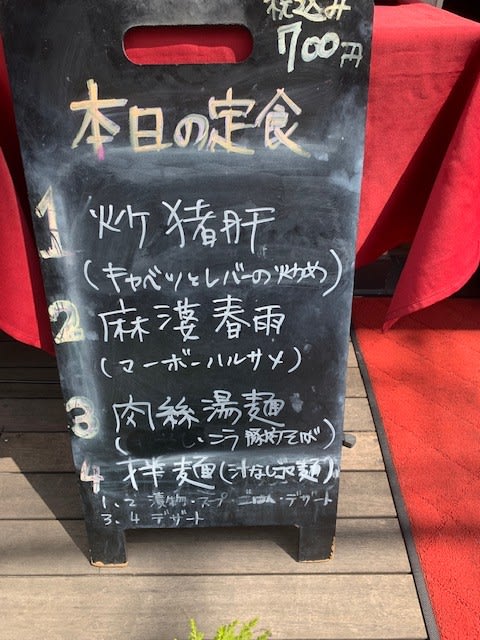 税込み
700円
本日の定食
1 炒猪肝
(キャベツとレバーの炒め)
2 麻婆春雨
(マーボーハルサメ)
3 肉絲湯麺
いニラ豚肉そば)
4 拌麺(汁なしゴマ麺)
1、2 漬物・スープ ごはん・デザート
3、4 デザート